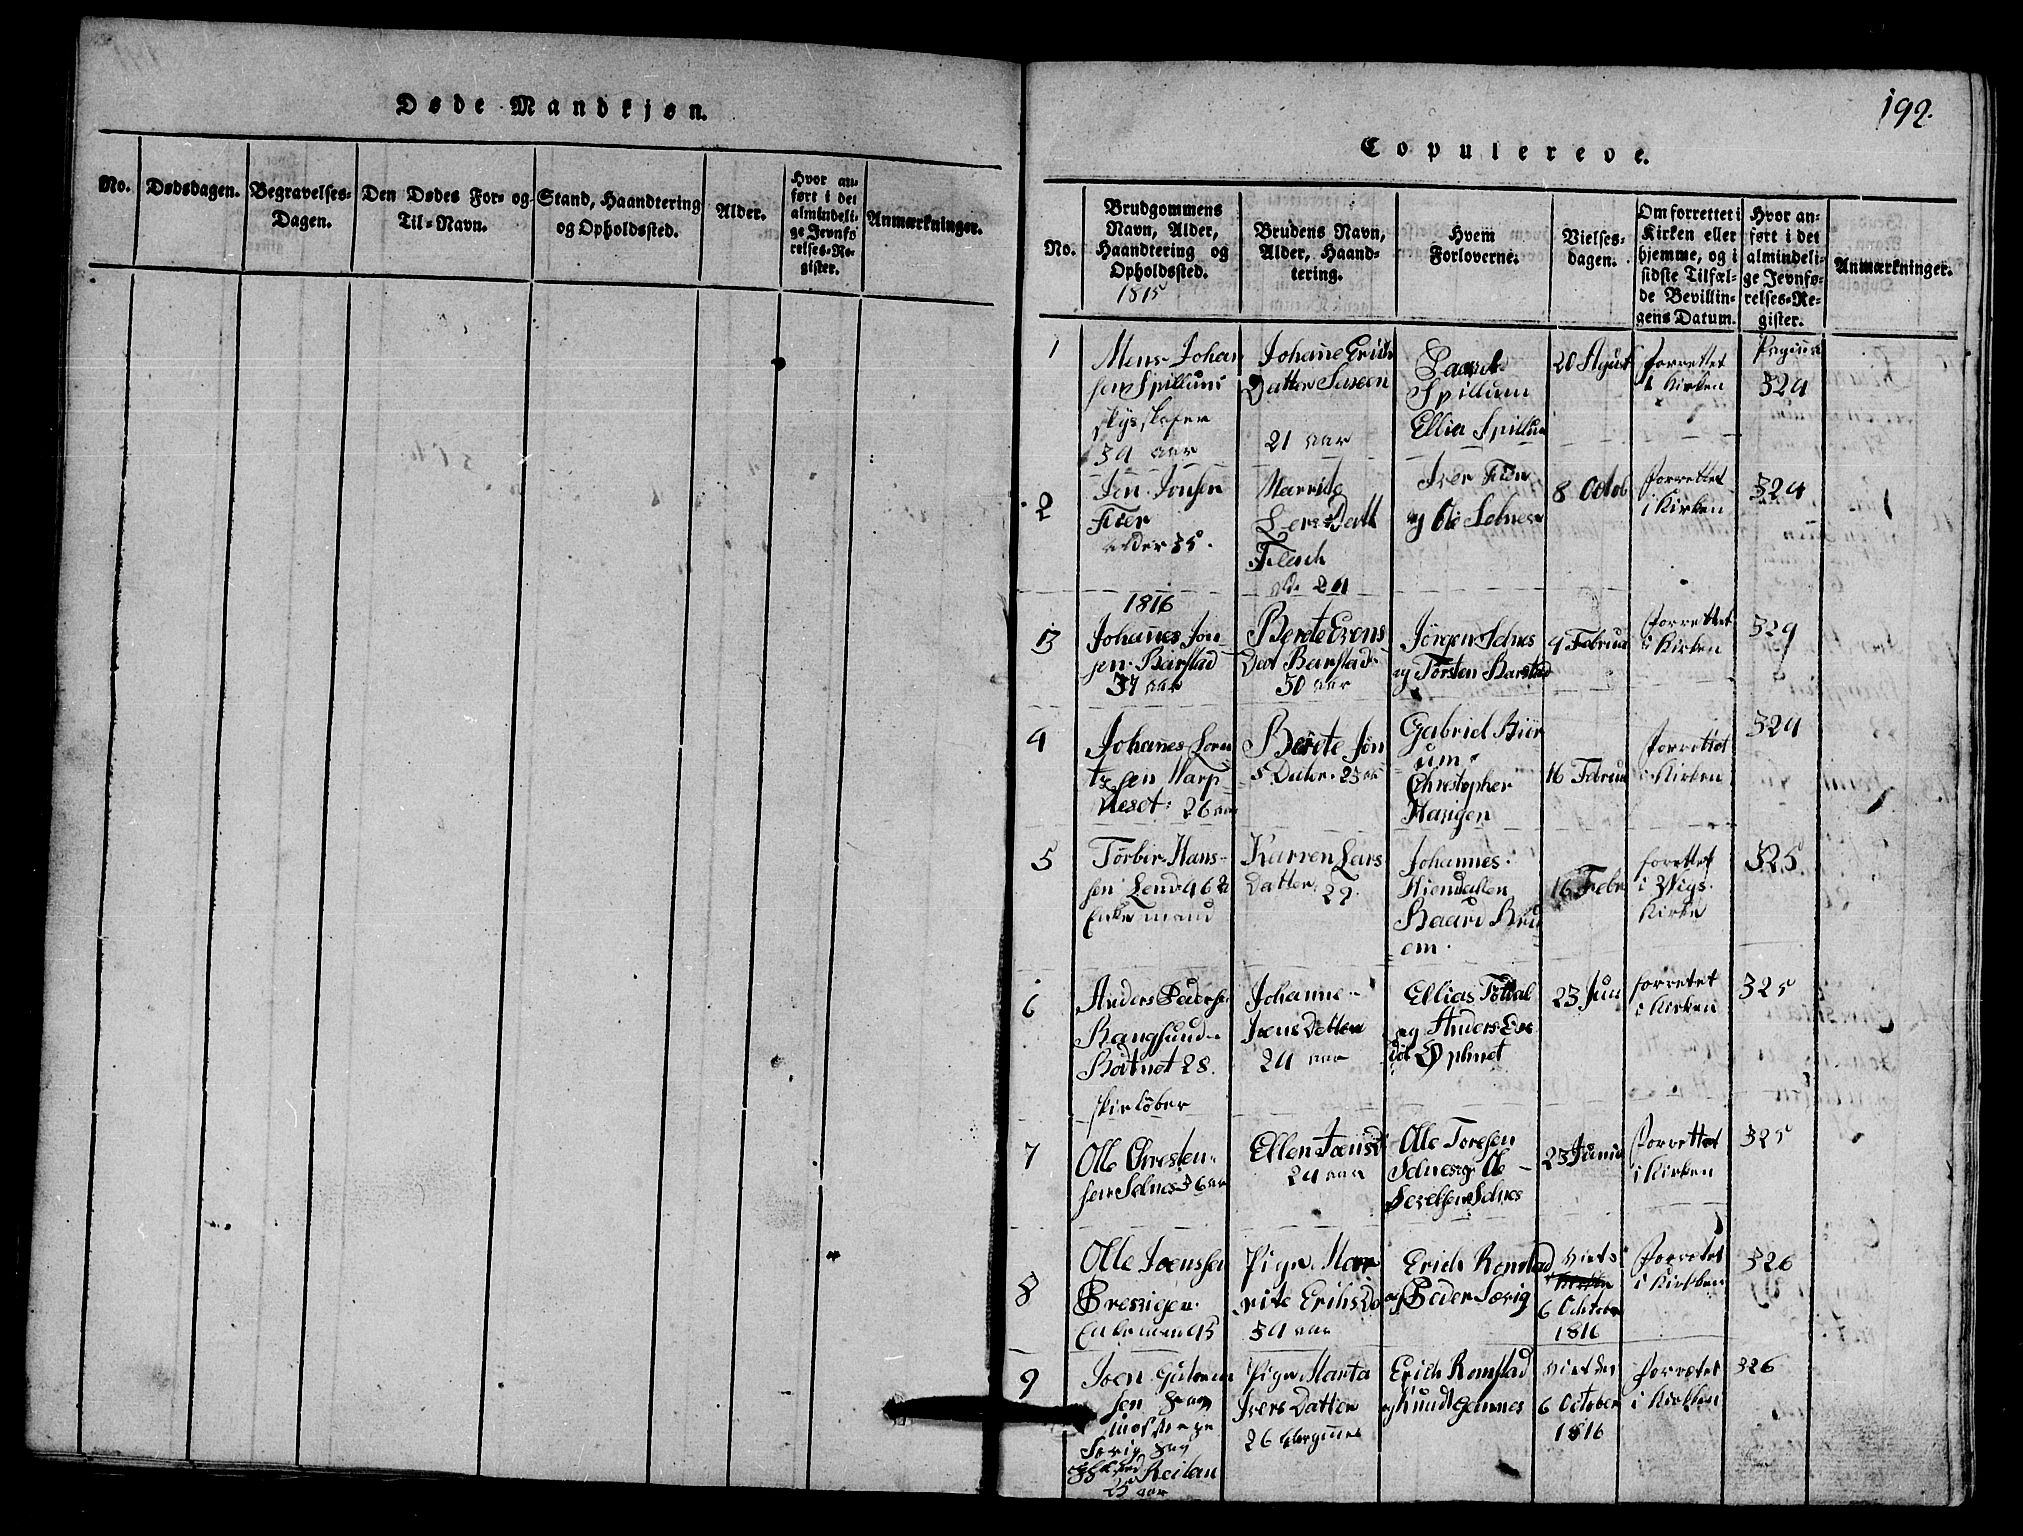 Døde Mandkjøn.
No.
Dødsdagen.
Begravelses-
Dagen.
Den Dødes For- og
Til-Navn.
Stand, Haandtering
og Opholdssted.
Alder.
Hvor an-
ført i det
almindeli-
ge Jevnfø-
relses-Re-
gister.
Anmærkninger.
192.
Copulerede.
No.
Brudgommens
Navn, Alder,
Haandtering og
Opholdssted.
1815
Brudens Navn,
Alder, Haand-
tering.
Hvem
Forloverne.
Vielses-
dagen.
Om forrettet i
Kirken eller
hjemme, og i
sidste Tilfæl-
de Bevillin-
gens Datum.
Hvor an-
ført i det
almindeli-
ge Jevnfø-
relses-Re-
gister.
Anmærkninger.
1
Mens Johan
sen Spillum
skysskafer
34 aar
Johane Erich
Datter
21 aar
Spillum
Ellia Spillum
20 Agust
forrettet
i Kirken
Pagina
324
2
Jen Jonsen
Fier
alder 35.
Marrite
Lars Datt
24
Iver Fier
og Ole Selnes
8 Octob
forrettet
i Kirken
324
1816
3
Johannes Jon
sen Barstad
37 aar
Berete Evens
Dat Barstad
50 aar
Jörgen Selnes
og Torsten Barstad
9 Februa
forrettet
i Kirken
324
4
Johanes Loren
tzsen Harp
Neset 26 aar
Berete Jön
s Datter 23 ar
Gabriel Biör
um
Christopher
Haugen
16 Februa
forrettet
i Kirken
324
5
Törber Hans
sen Lend 46 a
Enkemand
Karren Lars
Datter 29.
Johannes
Kiendalen
Baard Brü
em.
16 Febr
forettet
i Wigs
Kirke
325
6
Anders Pederse
Bangsund
Botnet 28.
skielöber
Johanne
Joens Datter
24 aar
Ellias Tötdal
og Anders Eve
Ophuet
23 Juni
forretet
i Kirken
325
7
Olle Christen
sen Selnes 36 ar
Ellen Joensd
24 aar
Olle Toresen
Selnes og Ole
Selnes
23 Junii
forrettet
i Kirken
325
8
Olle Joenssen
Enkeman 45
Pigen Mar
rite Erichs Da
34 aar
Erich Romstad
og Peder Sævig
viets
6 October
1816
forretet
i Kirkken
326
9
Joen
sen
Sævig
25 aar
Pigen Marta
Ivers Datter
26
Erich Romstad
og Knudt
viet den
6 October
1816
forretet
i Kirkken
326